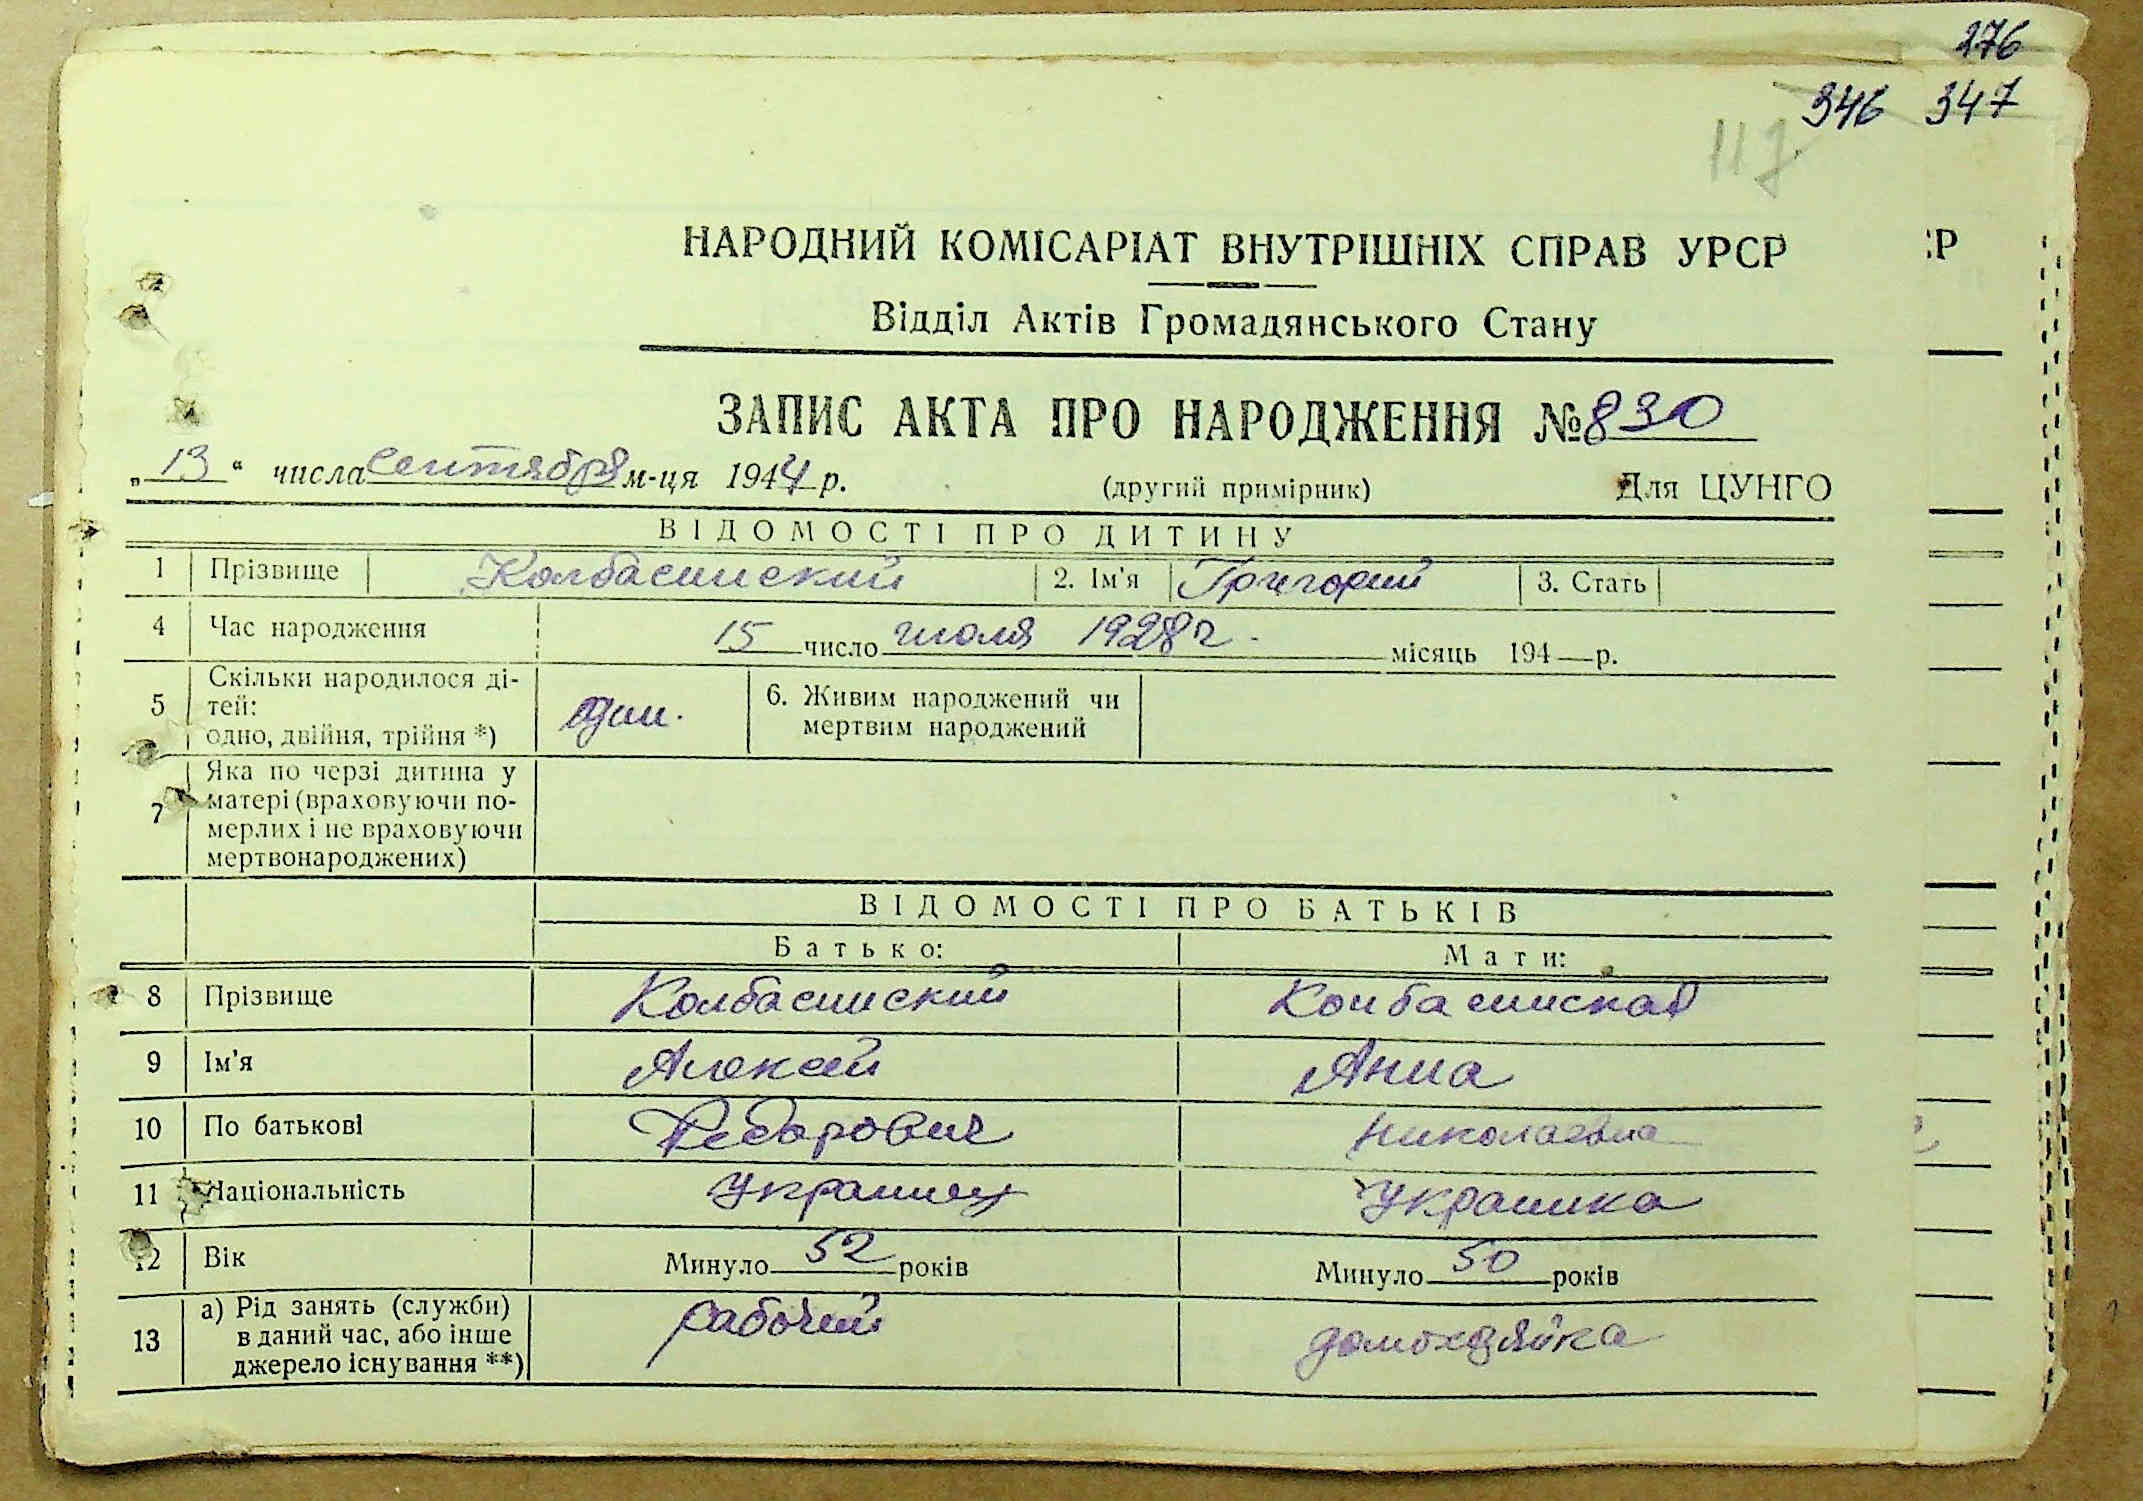 276
346 347
117
НАРОДНИЙ КОМІСАРІАТ ВНУТРІШНІХ СПРАВ УРСР
Відділ Актів Громадянського Стану
ЗАПИС АКТА ПРО НАРОДЖЕННЯ № 830
„13“ числа сентября м-ця 1944 р. (другий примірник) Для ЦУНГО
ВІДОМОСТІ ПРО ДИТИНУ
1 Прізвище Колбасинский 2. Ім'я Григорий 3. Стать
4 Час народження 15 число июля 1928 г. місяць 194—р.
5 Скільки народилося ді-
тей:
одно, двійня, трійня *) один. 6. Живим народжений чи
мертвим народжений
7 Яка по черзі дитина у
матері (враховуючи по-
мерлих і не враховуючи
мертвонароджених)
ВІДОМОСТІ ПРО БАТЬКІВ
Батько: Мати:
8 Прізвище Колбасинский Колбасинская
9 Ім'я Алексей Анна
10 По батькові Федорович Николаевна
11 Національність Украинец Украинка
12 Вік Минуло 52 років Минуло 50 років
13 а) Рід занять (служби)
в даний час, або інше
джерело існування **) рабочий домохозяйка
СР